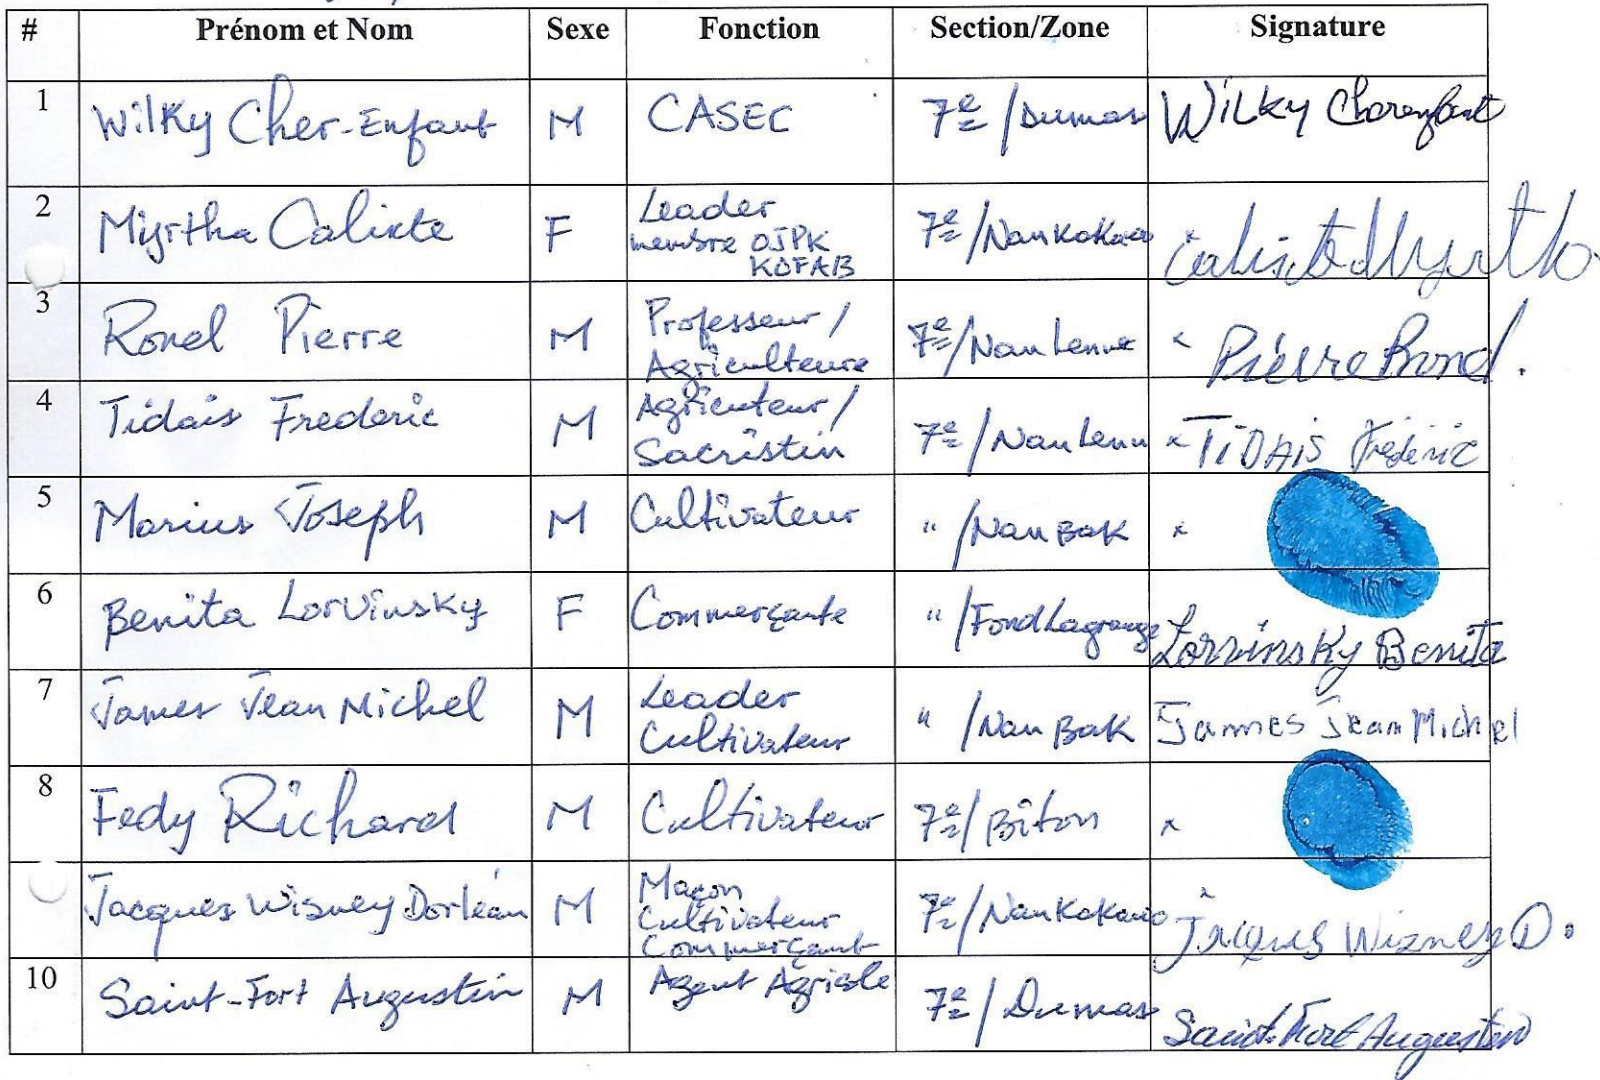 # Prénom et Nom Sexe Fonction Section/Zone Signature
1 Wilky Cher-Enfant M CASEC 7e/Dumas Wilky Cherenfant
2 Myrtha Calixte F Leader membre OJPK KOFAB 7e/Nan Kokano x Calixte Myrtha
3 Ronel Pierre M Professeur / Agriculteure 7e/Nan Lenne x Pierre Ronel.
4 Tidais Frederic M Agricuteur / Sacristin 7e/Nan Lenn x TIDAIS Frédéric
5 Marius Joseph M Cultivateur " /Nan Bak x
6 Benita Lorvinsky F Commerçante " /Fond Lagrange Lorvinsky Benita
7 James Jean Michel M Leader Cultivateur " /Nan Bak Jammes Jean Michel
8 Fedy Richard M Cultivateur 7e/Biton x
Jacques Wisney Dorléan M Maçon Cultivateur Commerçant 7e/Nan Kokano x Jacques Wizney D.
10 Saint-Fort Augustin M Agent Agricole 7e/Dumas Saint-Fort Augustin